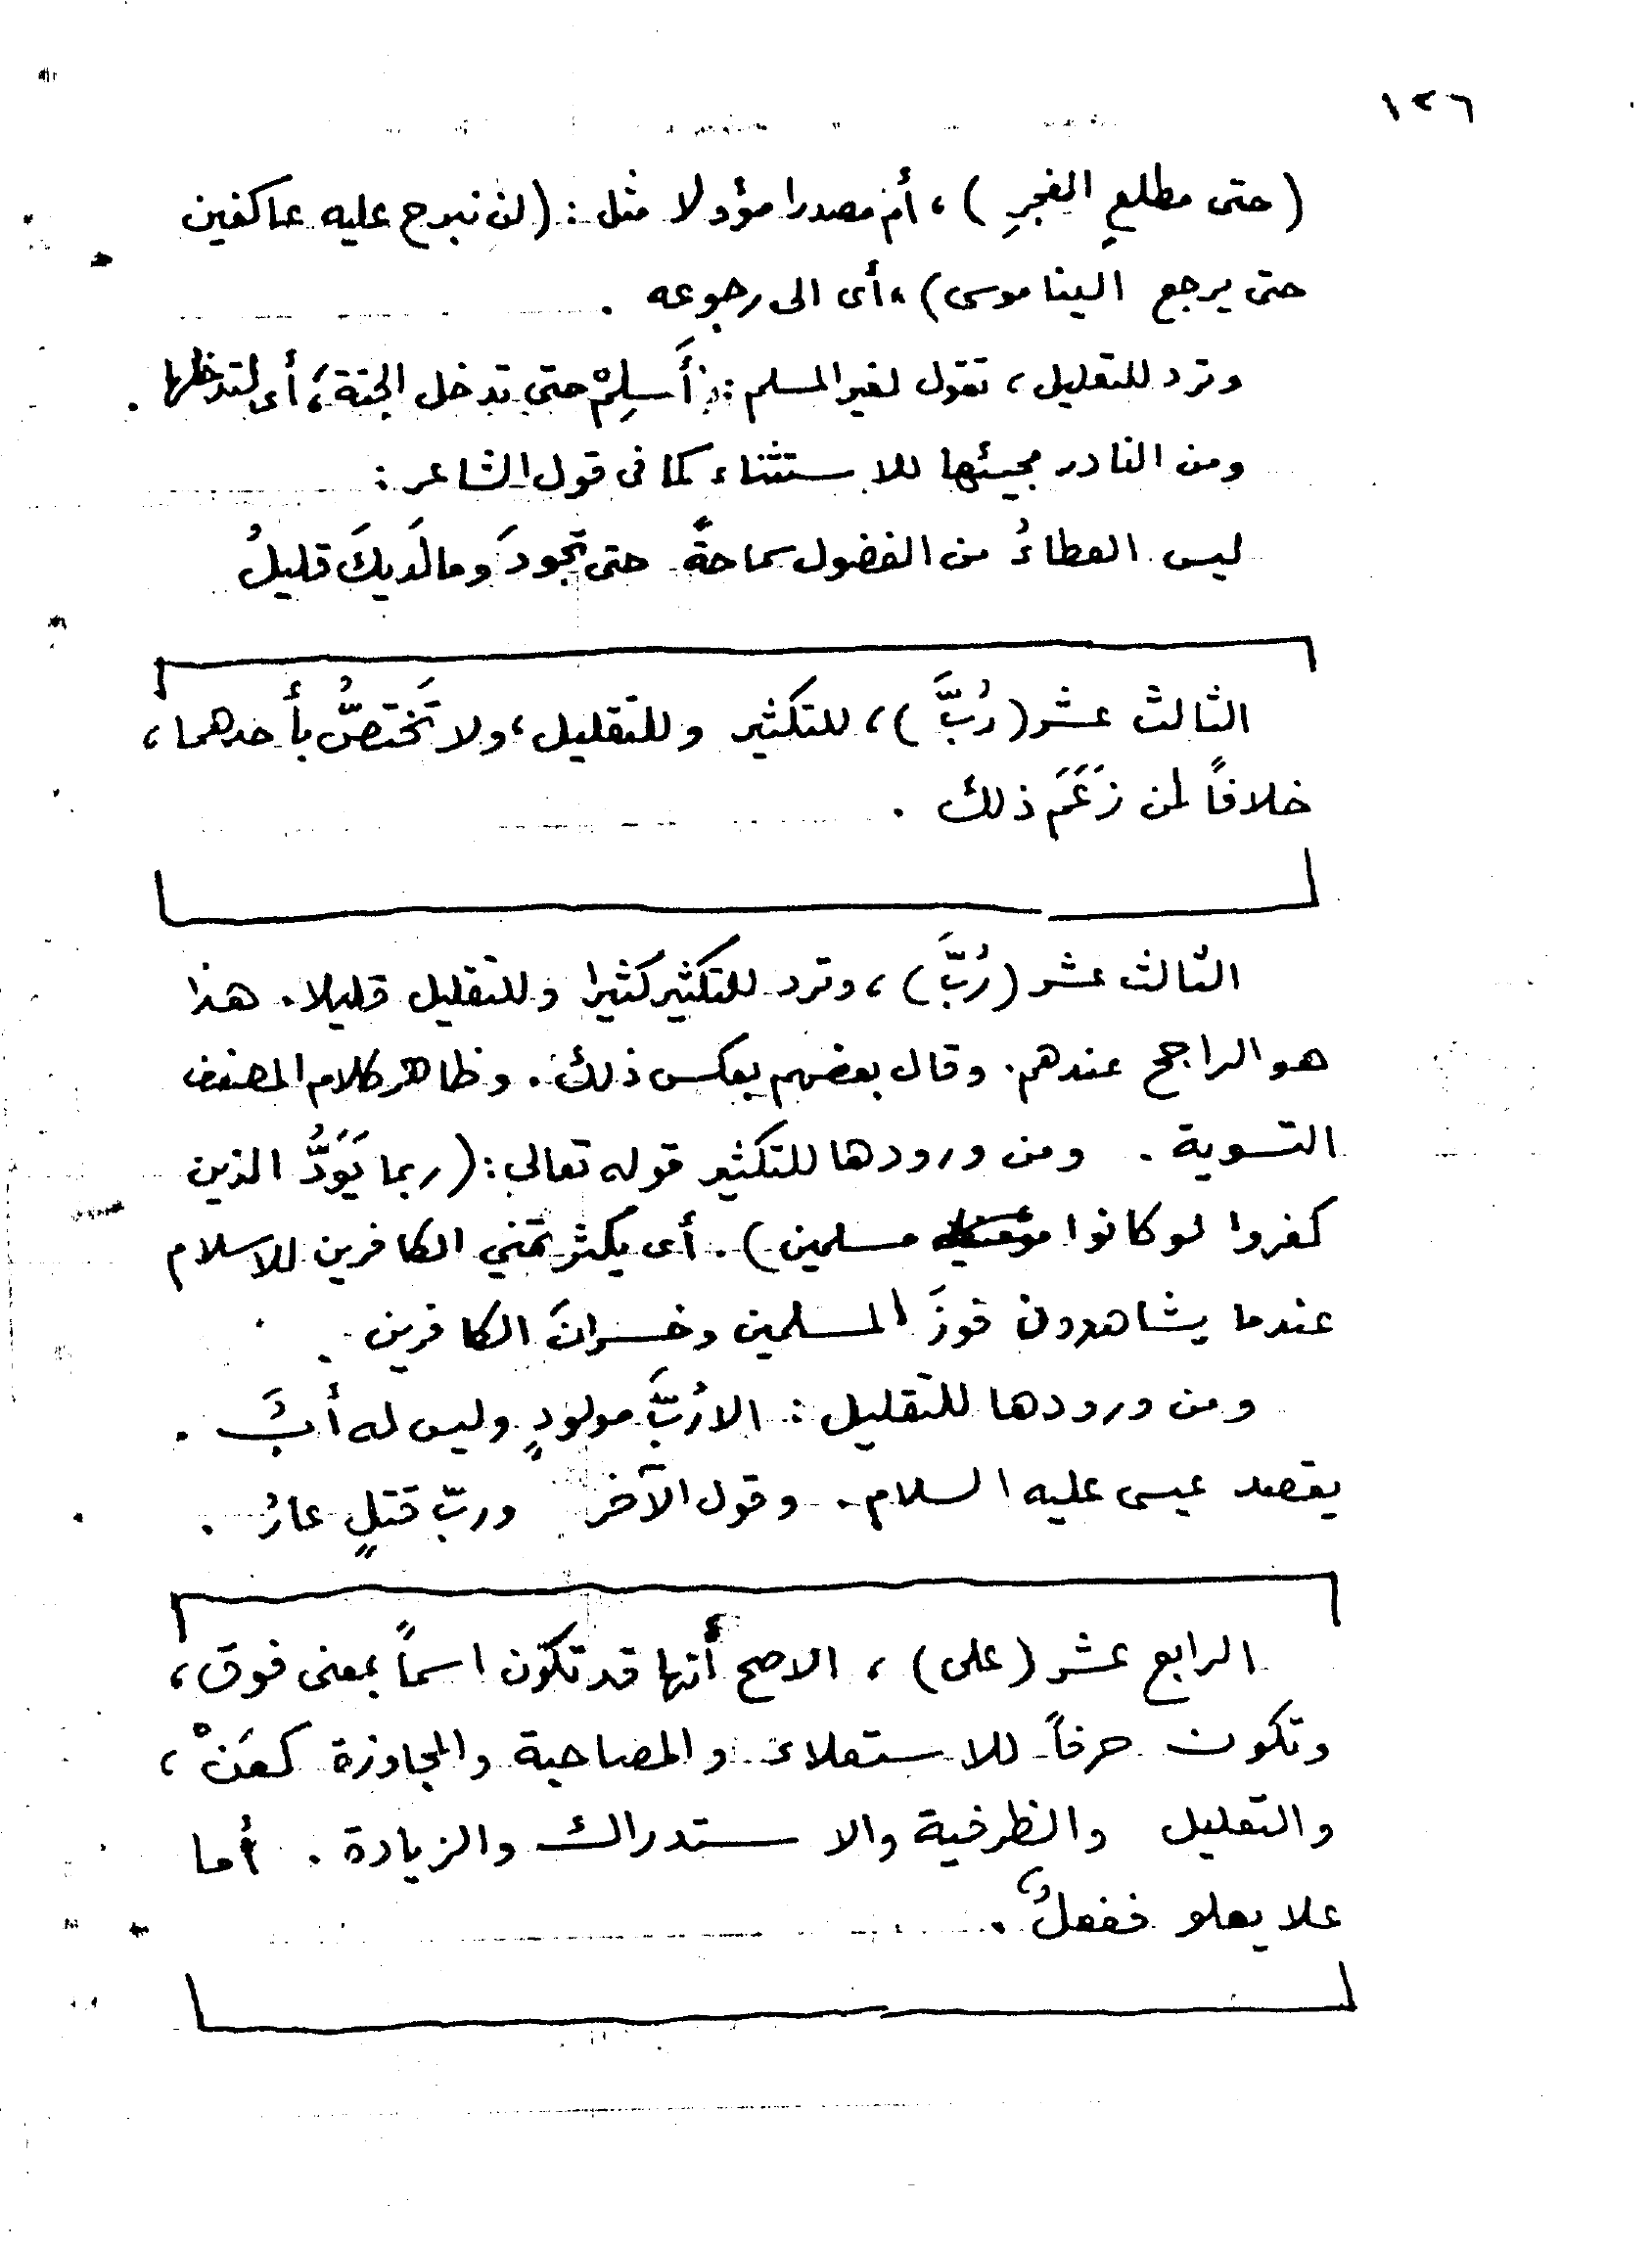 ١٢٦
(حتى مطلعِ الفجرِ)، أم مصدرا مؤولا مثل: (لن نبرح عليه عاكفين
حتى يرجع الينا موسى)، أى الى رجوعه.
وترد للتعليل، تقول لغير المسلم: أَسلِمْ حتى تدخل الجنة، أى لتدخلها.
ومن النادر مجيئها للاستثناء كما فى قول الشاعر:
ليس العطاءُ من الفضول سماحةً حتى تجودَ وما لَديكَ قليلُ
الثالث عشر (رُبَّ)، للتكثير وللتقليل، ولا تَختصُّ بأحدهما،
خلافاً لمن زَعَمَ ذلك.
الثالث عشر (رُبَّ)، وترد للتكثير كثيرا وللتقليل قليلا. هذا
هو الراجح عندهم. وقال بعضهم بعكس ذلك. وظاهر كلام المصنف
التسوية. ومن ورودها للتكثير قوله تعالى: (ربما يَوَدُّ الذين
كفروا لو كانوا مسلمين). أى يكثر تمني الكافرين للاسلام
عندما يشاهدون فوزَ المسلمين وخسرانَ الكافرين.
ومن ورودها للتقليل: الا رُبَّ مولودٍ وليس له أبٌ.
يقصد عيسى عليه السلام. وقول الآخر وربّ قتلٍ عارُ.
الرابع عشر (على)، الاصح أنها قد تكون اسماً بمعنى فوق،
وتكون حرفاً للاستعلاء والمصاحبة والمجاوزة كعَنْ،
والتعليل والظرفية والاستدراك والزيادة. أما
علا يعلو ففعلٌ.